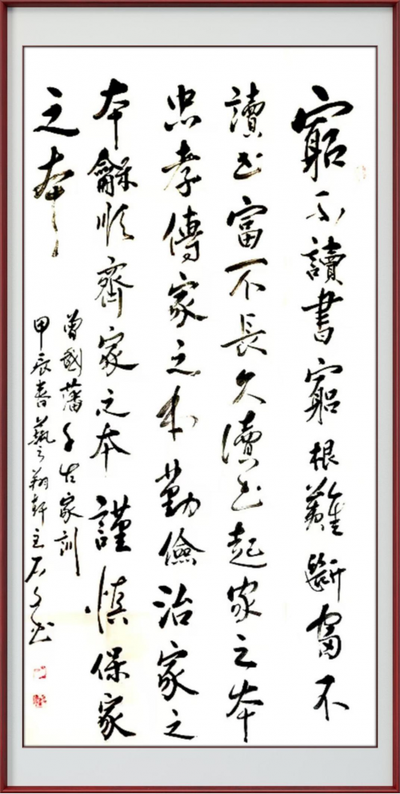 窮不讀書窮根難斷富不
讀书富不長久讀书起家之本
忠孝傳家之本勤儉治家之
本龢順齊家之本謹慎保家
之本
曾國藩千古家訓
甲辰春藝之翔軒主石书